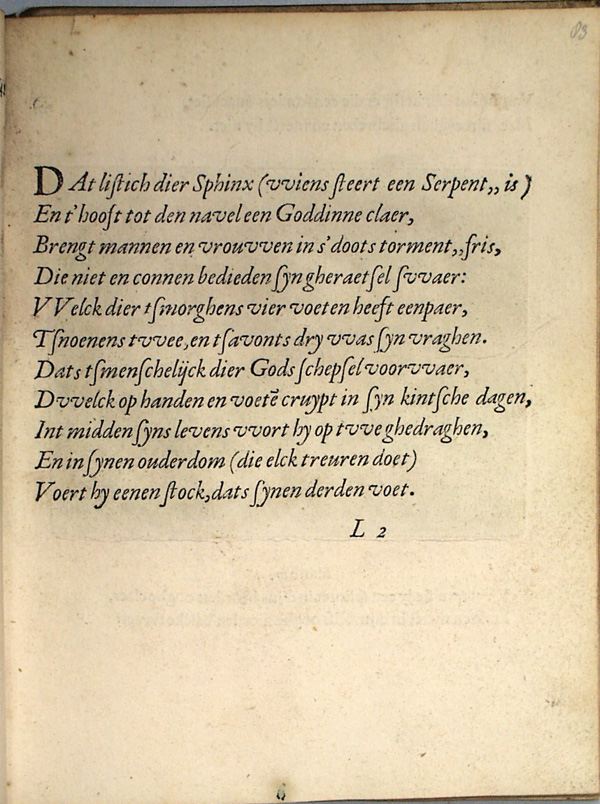 83
DAt listich dier Sphinx (vviens steert een Serpent,, is)
En t'hooft tot den navel een Goddinne claer,
Brengt mannen en vrouvven in s'doots torment,,fris,
Die niet en connen bedieden syn gheraetsel svvaer:
VVelck dier tsmorghens vier voeten heeft eenpaer,
Tsnoenens tvvee, en tsavonts dry vvas syn vraghen.
Dats tsmenschelijck dier Gods schepsel voorvvaer,
Dvvelck op handen en voetē cruypt in syn kintsche dagen,
Int midden syns levens vvort hy op tvve ghedraghen,
En in synen ouderdom (die elck treuren doet)
Voert hy eenen stock, dats synen derden voet.
L 2